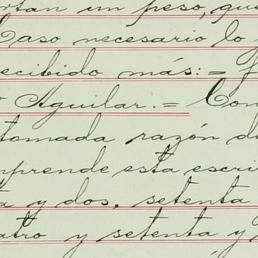 rtan un peso, que
Caso necesario lo
ecibido más:=
Aguilar.= Con
tomada razón d
mprende esta escri
ta y dos, setenta
atro y setenta y